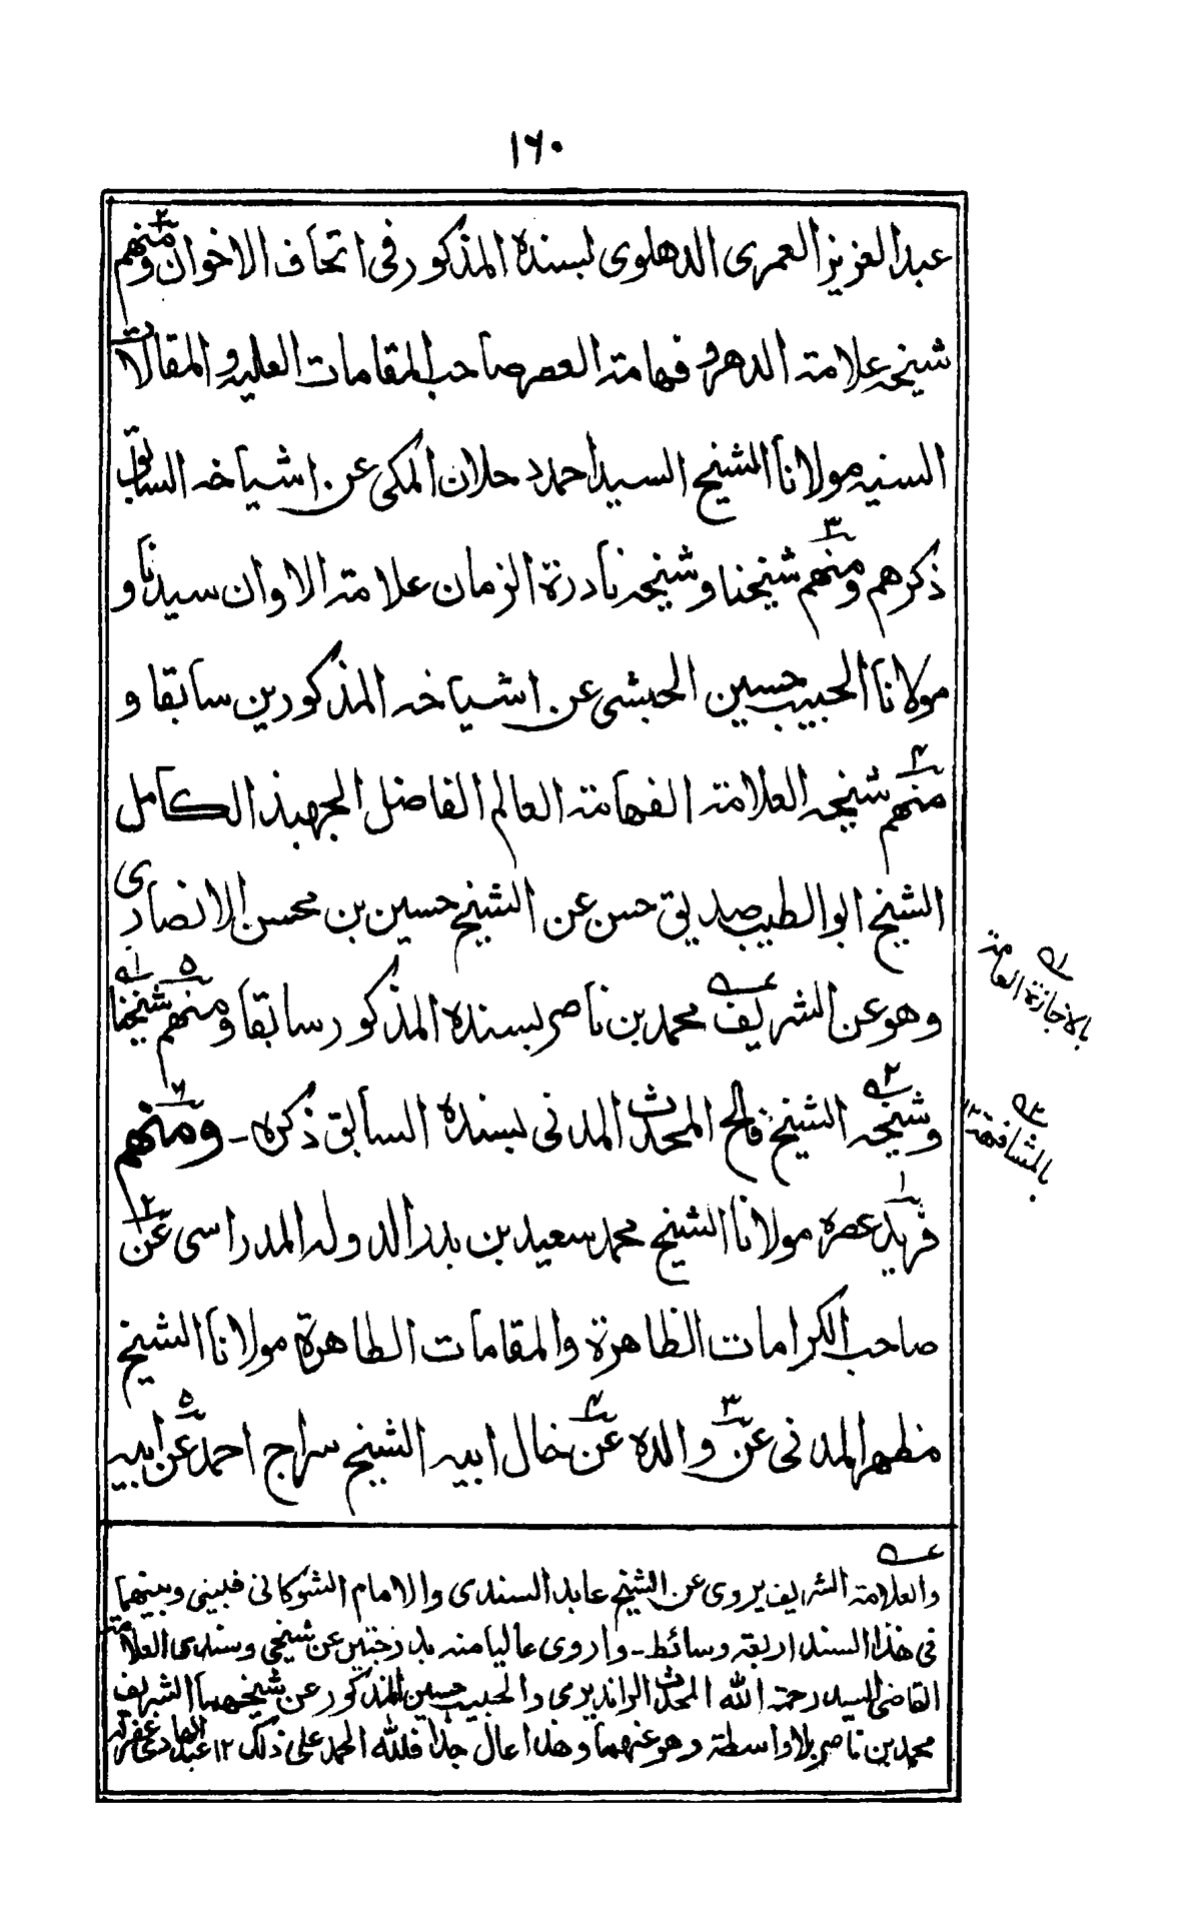 ١٦٠
عبد العزيز العمرى الدهلوى بسنده المذكور فى اتحاف الاخوان ومنهم٢
شيخه علامة الدهر و فهامة العصر صاحب المقامات العليه و المقالات
السنيه مولانا الشيخ السيد احمد دحلان المكى عن اشياخه السابق
ذكرهم ومنهم٣ شيخنا وشيخه نادرة الزمان علامة الاوان سيدنا و
مولانا الحبيب حسين الحبشى عن اشياخه المذكورين سابقا و
منهم٤ شيخه العلامة الفهامة العالم الفاضل الجهبذ الكامل
الشيخ ابو الطيب صديق حسن عن الشيخ حسين بن محسن الانصارى
وهو عن الشريف محمد بن ناصر بسنده المذكور سابقا ومنهم٥ شيخنا١
وشيخه٢ الشيخ فالح المحدث المدنى بسنده السابق ذكره - ومنهم٦
فريد١ عصره مولانا الشيخ محمد سعيد بن بدر الدوله المدراسى عن٢
صاحب الكرامات الظاهرة والمقامات الطاهرة مولانا الشيخ
مظهر المدنى عن٣ والده عن٤ خال ابيه الشيخ سراج احمد عن٥ ابيه
١
بالاجازة العامة
٢
بالمشافهة ١٢
والعلامة الشريف يروى عن الشيخ عابد السندى والامام الشوكانى فبينى وبينهما
فى هذا السند اربعة وسائط - واروى عاليا منه بدرجتين عن شيخى وسندى العلامة
القاضى السيد رحمة الله المحدث الرانديرى والحبيب حسين المذكور عن شيخهما الشريف
محمد بن ناصر بلا واسطة وهو عنهما وهذا عال جدا فلله الحمد على ذلك ١٢ عبد الهادى غفر له